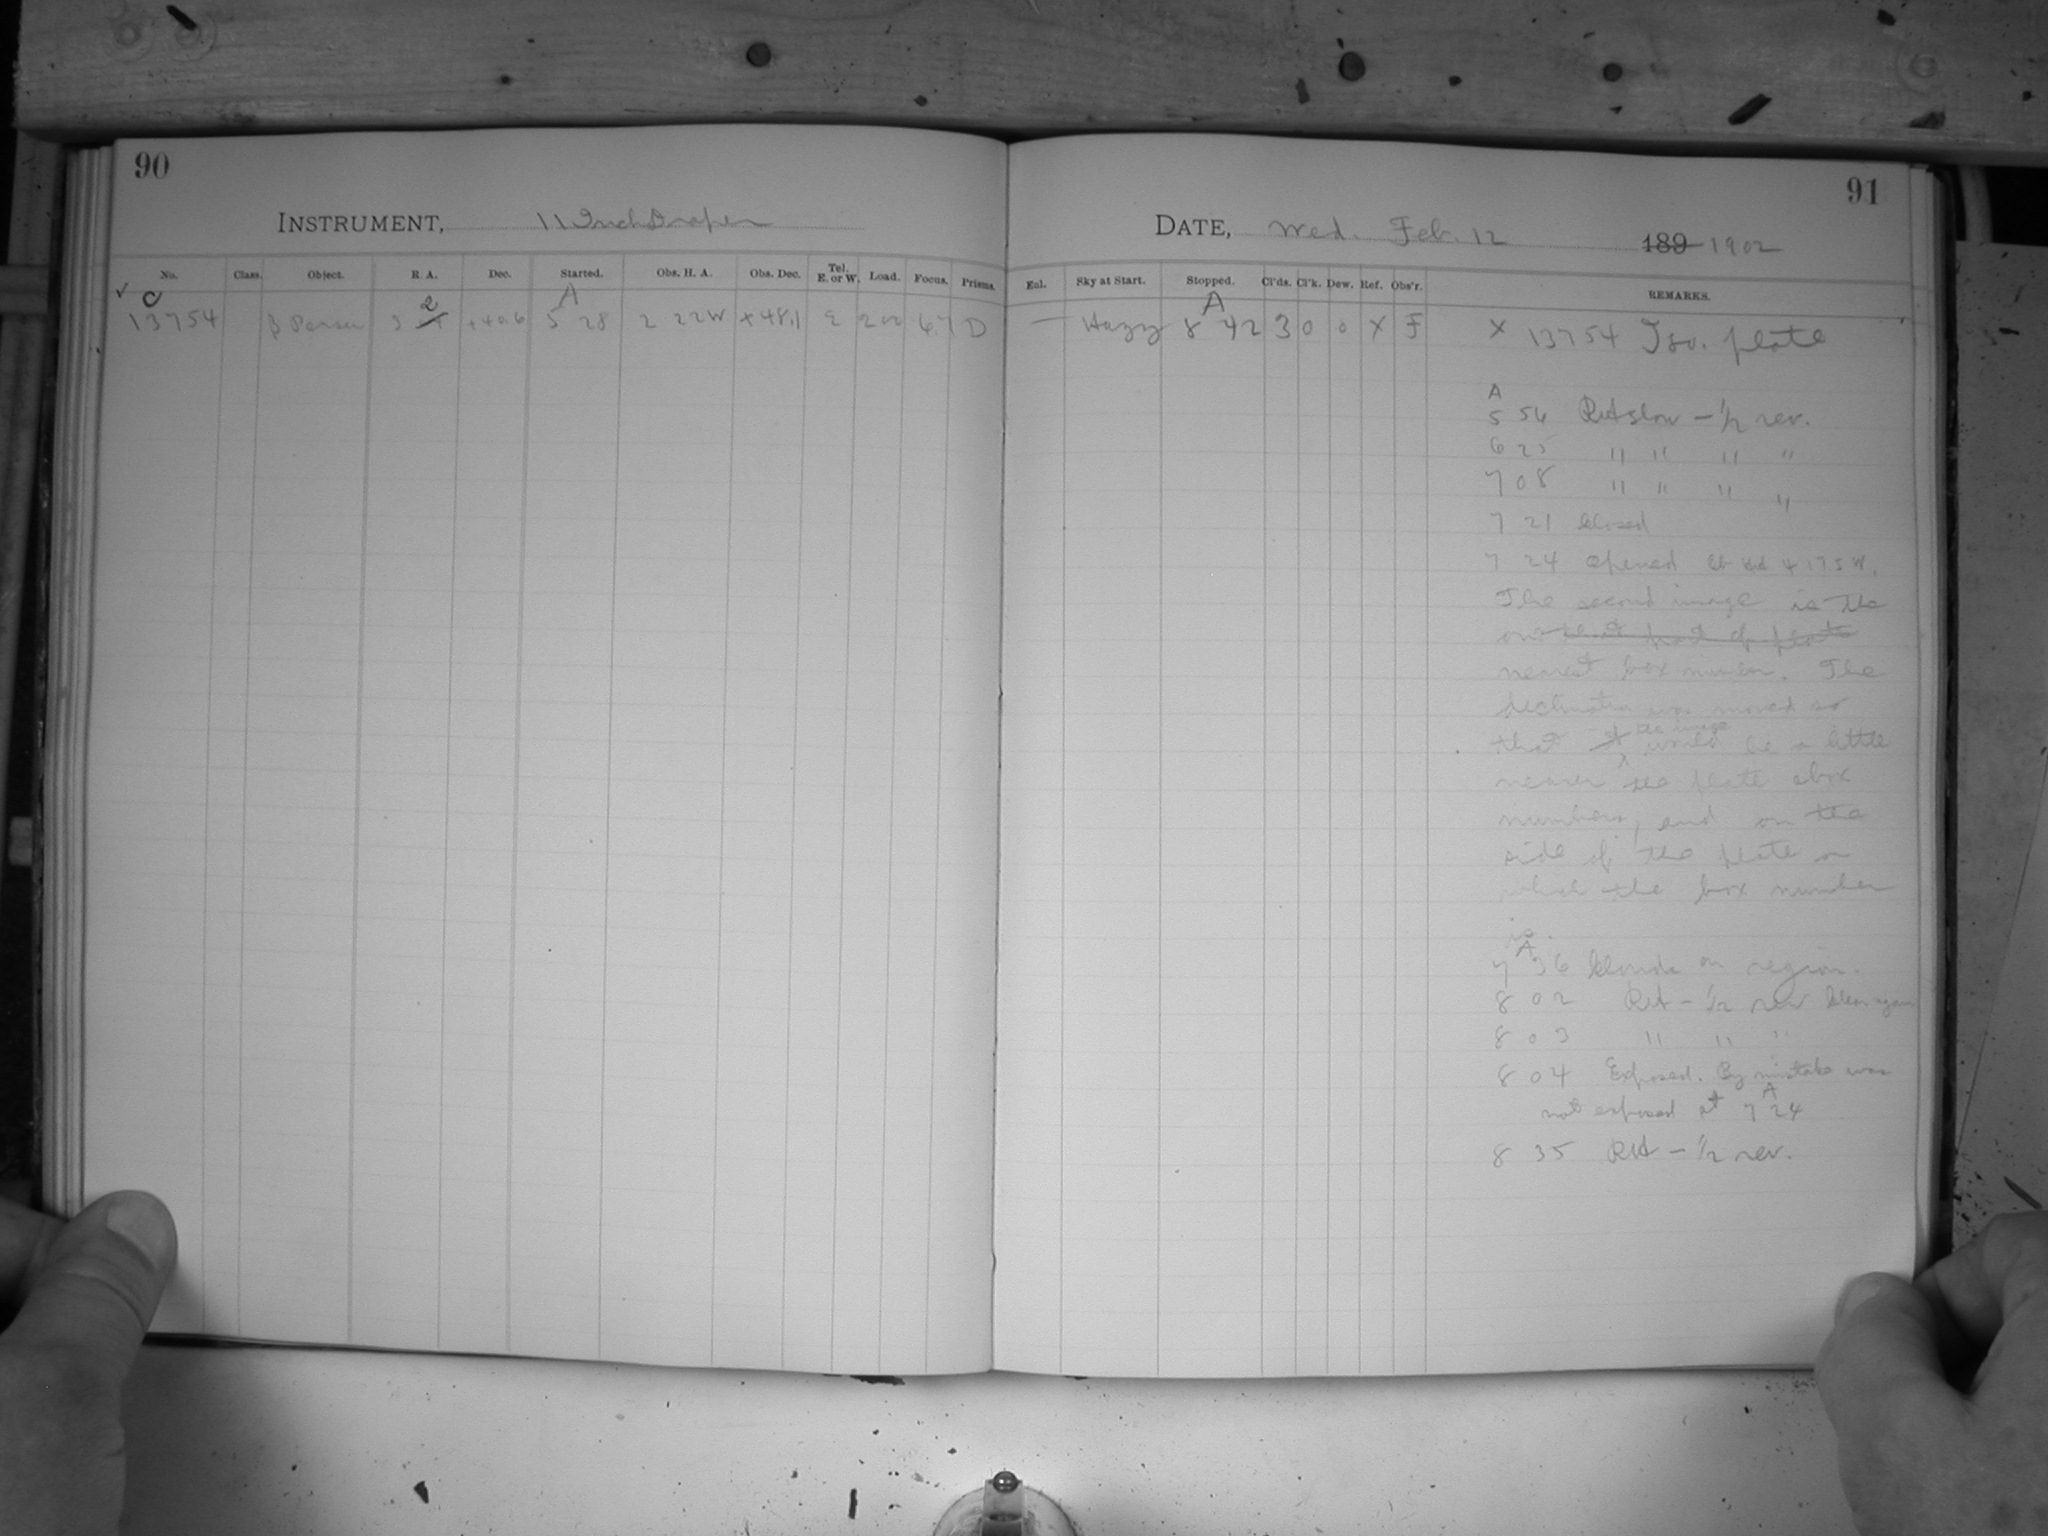 90
INSTRUMENT, 11 Inch Draper
No. Class. Object. R. A. Dec. Started. Obs. H. A. Obs. Dec. Tel. E. or W. Load. Focus. Prisms.
✓ C 2 A
13754 β Persei 3 +40.6 5 28 2 22W +48.1 E 202 6.7 D
91
DATE, Wed. Feb. 12 189 1902
Eol. Sky at Start. Stopped. Cl'ds. Cl'k. Dew. Ref. Obs'r. REMARKS.
A
— Hazy 8 42 3 0 0 X F X 13754 Iso. plate
A
5 54 Rut slow - 1/2 rev.
6 25 " " " "
7 08 " " " "
7 21 Closed
7 24 opened W.
The second image is the
one part of plate
nearest box number. The
declination was moved so
that it the image would be a little
nearer the plate box
numbers, and on the
side of the plate on
which the box number
is.
A
7 36 Clouds on region.
8 02 Rut - 1/2 rev Clear again
8 03 " " "
8 04 Exposed. By mistake was
not exposed at 7 A 24
8 35 Rut - 1/2 rev.